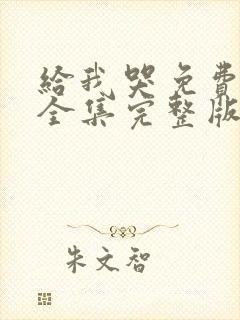 給我哭免費
全集完整版
朱文智